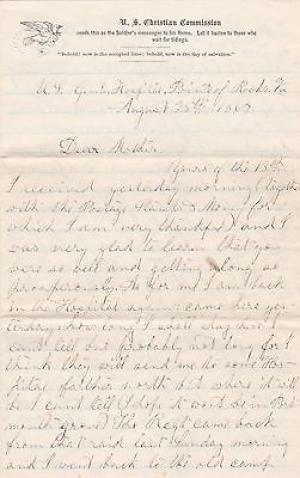 U. S. Christian Commission
sends this as the Soldier's messenger to his Home. Let it hasten to those who
wait for tidings.
"Behold! now is the accepted time; behold, now is the day of salvation."
U.S. Genl. Hospital, Point of Rocks, Va
August 25th 186
Dear Mother
Yours of the 18th
I received yesterday morning (together
with the Postage Stamps & Money for
which I am very thankful) and I
was very glad to learn that you
were so well and getting along so
prosperously. As for me I am back
in the Hospital again came here yes-
terday how long I shall stay here I
cant tell but probably not long for I
think they will send me to some Hos-
pital farther north but where it will
be I cant tell (I hope it wont be in Ports-
mouth grove) The Regt came back
from that raid last Sunday morning
and I went back to the old camp